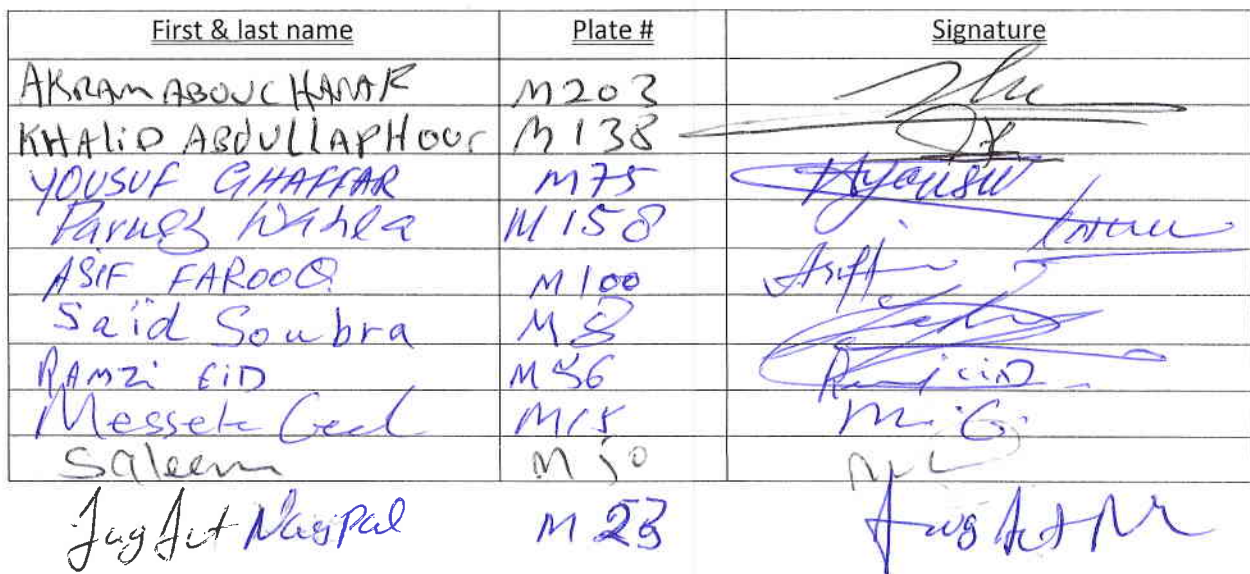 First & last name Plate # Signature
AKRAM ABOUCHANAR M203
KHALID ABDULLAPHOUR M138
YOUSUF GHAFFAR M75 Hyousuf
M158
ASIF FAROOQ M100 Asiff
Saïd Soubra M8
RAMZi EiD M56 Ramzi EiD
Messele M15 M.G.
Saleem M50
JagJit NagPal M23 JagJit N